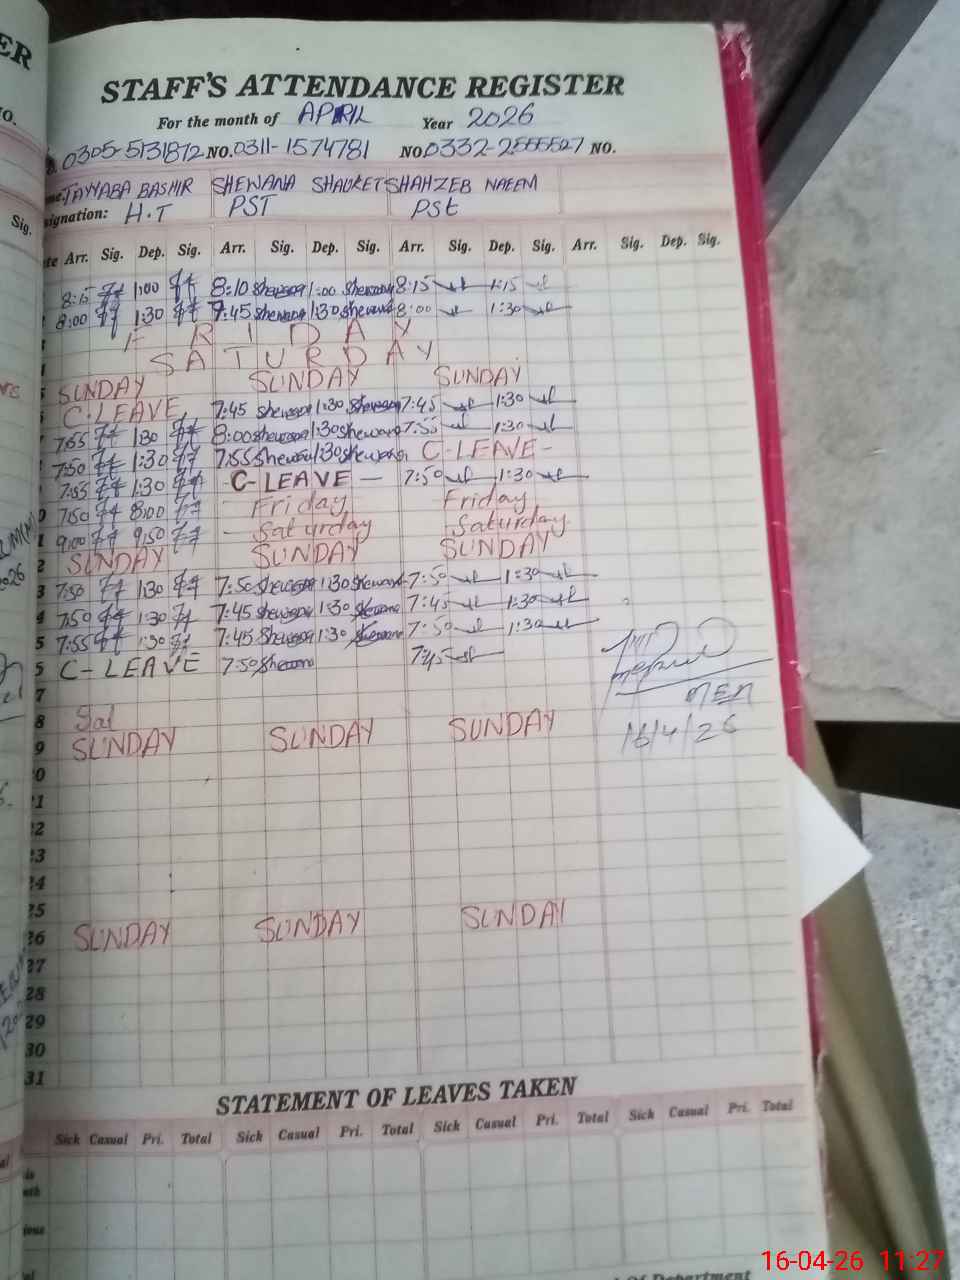 STAFF'S ATTENDANCE REGISTER
For the month of APRIL Year 2026
0305-5131872 NO. 0311-1574781 NO. 0332-2555527 NO.
TAYYABA BASHIR SHEWANA SHAUKET SHAHZEB NAEEM
signation: H.T PST PSt
Arr. Sig. Dep. Sig. Arr. Sig. Dep. Sig. Arr. Sig. Dep. Sig. Arr. Sig. Dep. Sig.
8:15 1:00 8:10 Shewana 1:00 Shewana 8:15 1:15
8:00 1:30 7:45 Shewana 1:30 Shewana 8:00 1:30
FRIDAY
SATURDAY
SUNDAY SUNDAY SUNDAY
C-LEAVE 7:45 Shewana 1:30 Shewana 7:45 1:30
7:55 1:30 8:00 Shewana 1:30 Shewana 7:55 1:30
7:50 1:30 7:55 Shewana 1:30 Shewana C-LEAVE-
7:55 1:30 C-LEAVE - 7:50 1:30
7:50 8:00 Friday Friday
9:00 9:50 Saturday Saturday
2 SUNDAY SUNDAY SUNDAY
3 7:50 1:30 7:50 Shewana 1:30 Shewana 7:50 1:30
4 7:50 1:30 7:45 Shewana 1:30 Shewana 7:45 1:30
5 7:55 1:30 7:45 Shewana 1:30 Shewana 7:50 1:30
C-LEAVE 7:50 Shewana 7:45
7 MEA
8 Sat 16/4/26
9 SUNDAY SUNDAY SUNDAY
20
21
22
23
24
25
26 SUNDAY SUNDAY SUNDAY
27
28
29
30
31
STATEMENT OF LEAVES TAKEN
Sick Casual Pri. Total Sick Casual Pri. Total Sick Casual Pri. Total Sick Casual Pri. Total
of Department
16-04-26 11:27